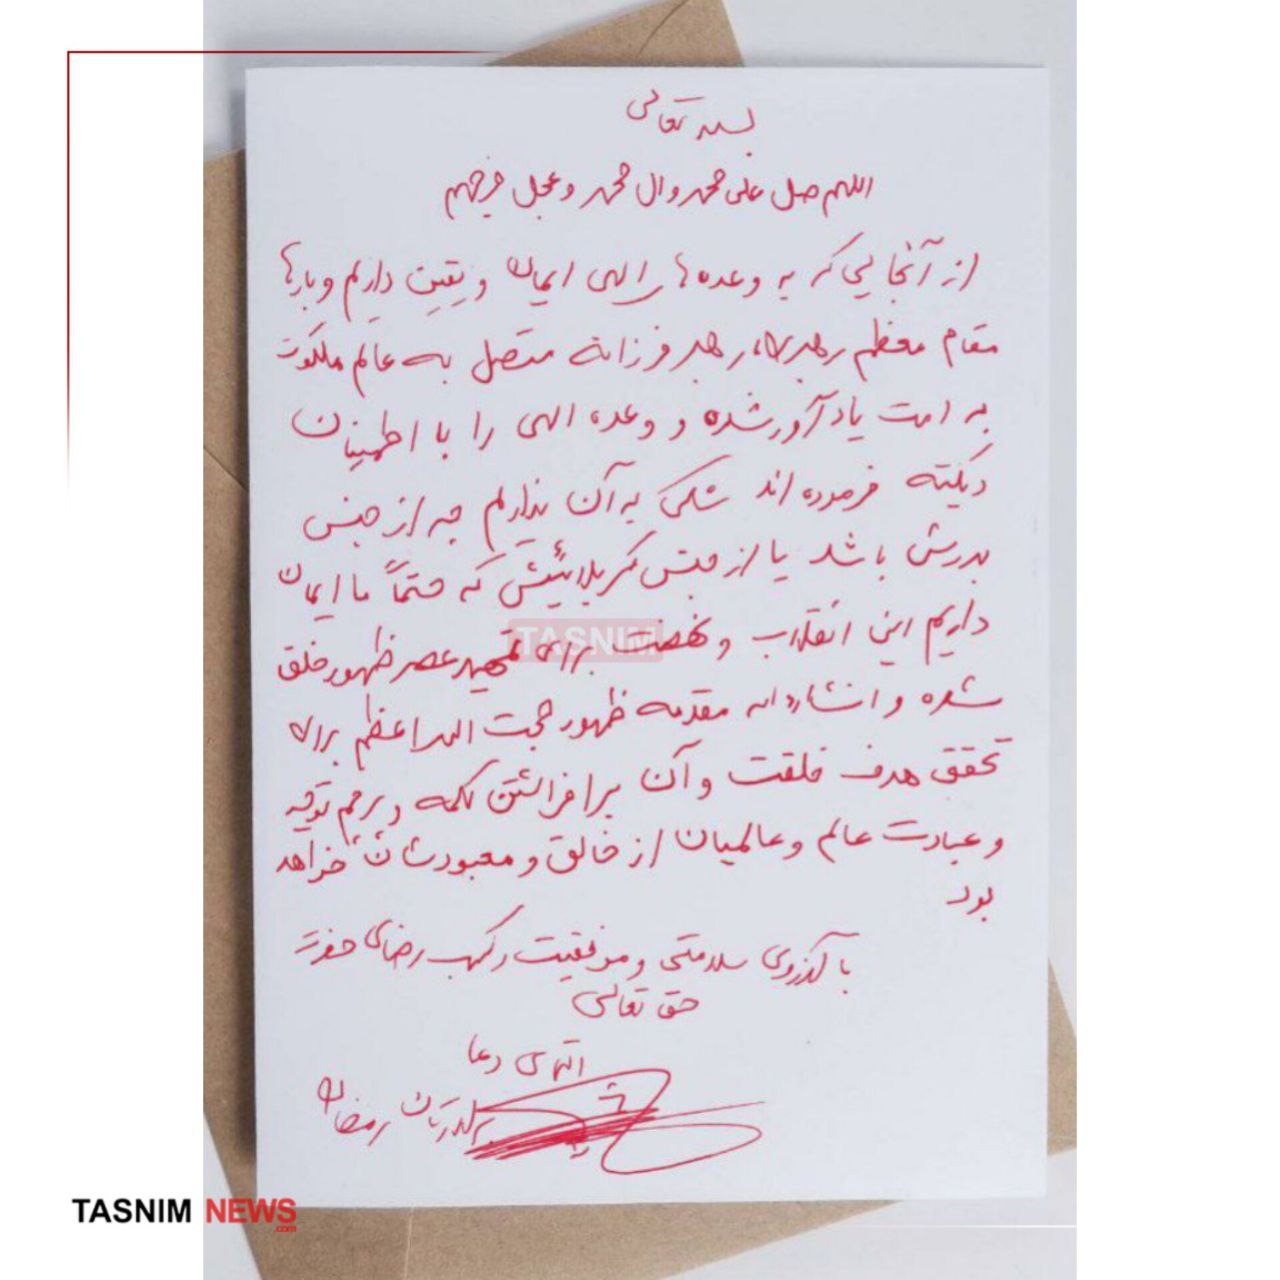 بسمه تعالی
اللهم صل علی محمد و ال محمد و عجل فرجهم
از آنجایی که به وعده های الهی ایمان و یقین داریم و بارها
مقام معظم رهبری، رهبر فرزانه متصل به عالم ملکوت
به امت یادآور شده و وعده الهی را با اطمینان
دیکته فرموده اند شکی به آن نداریم چه از جنس
بدرش باشد یا از جنس کربلائیش که حتماً ما ایمان
داریم این انقلاب و نهضت برای تمهید عصر ظهور خلق
شده و انشاءالله مقدمه ظهور حجت الله اعظم برای
تحقق هدف خلقت و آن برافراشتن کلمه و پرچم توحید
و عبادت عالم و عالمیان از خالق و معبودشان خواهد
بود
با آرزوی سلامتی و موفقیت و کسب رضای حضرت
حق تعالی
التماس دعا
برادرتان رمضان
TASNIM
TASNIM NEWS
.com